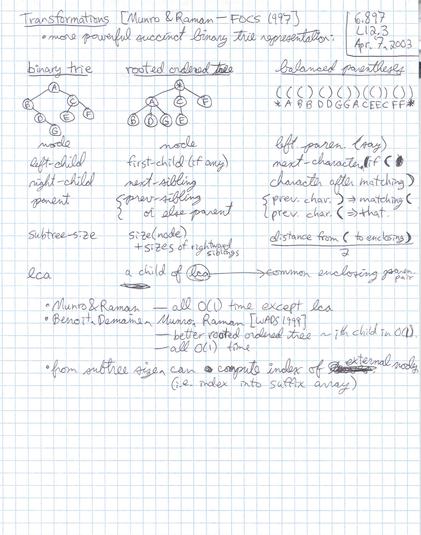 Transformations [Munro & Raman — FOCS 1997]
6.897
L12.3
Apr. 7, 2003
• more powerful succinct binary trie representation:
binary trie
rooted ordered tree
balanced parentheses
A
B C
D E F
G
*
A C F
B D G E
( ( ( ) ( ) ( ) ) ( ( ) ) ( ) )
* A B B D D G G A C E E C F F *
node
node
left paren. (say)
left-child
first-child (if any)
next-character, if (
right-child
next-sibling
character after matching )
parent
{ prev-sibling
or else parent
{ prev. char. ) ⇒ matching (
prev. char. ( ⇒ that.
subtree-size
size(node)
+ sizes of rightward siblings
distance from ( to enclosing )
2
lca
a child of lca
→ common enclosing paren. pair
• Munro & Raman — all O(1) time except lca
• Benoit, Demaine, Munro, Raman [WADS 1999]
— better rooted ordered tree ~ ith child in O(1).
— all O(1) time
• from subtree sizes can compute index of external node
(i.e. index into suffix array)